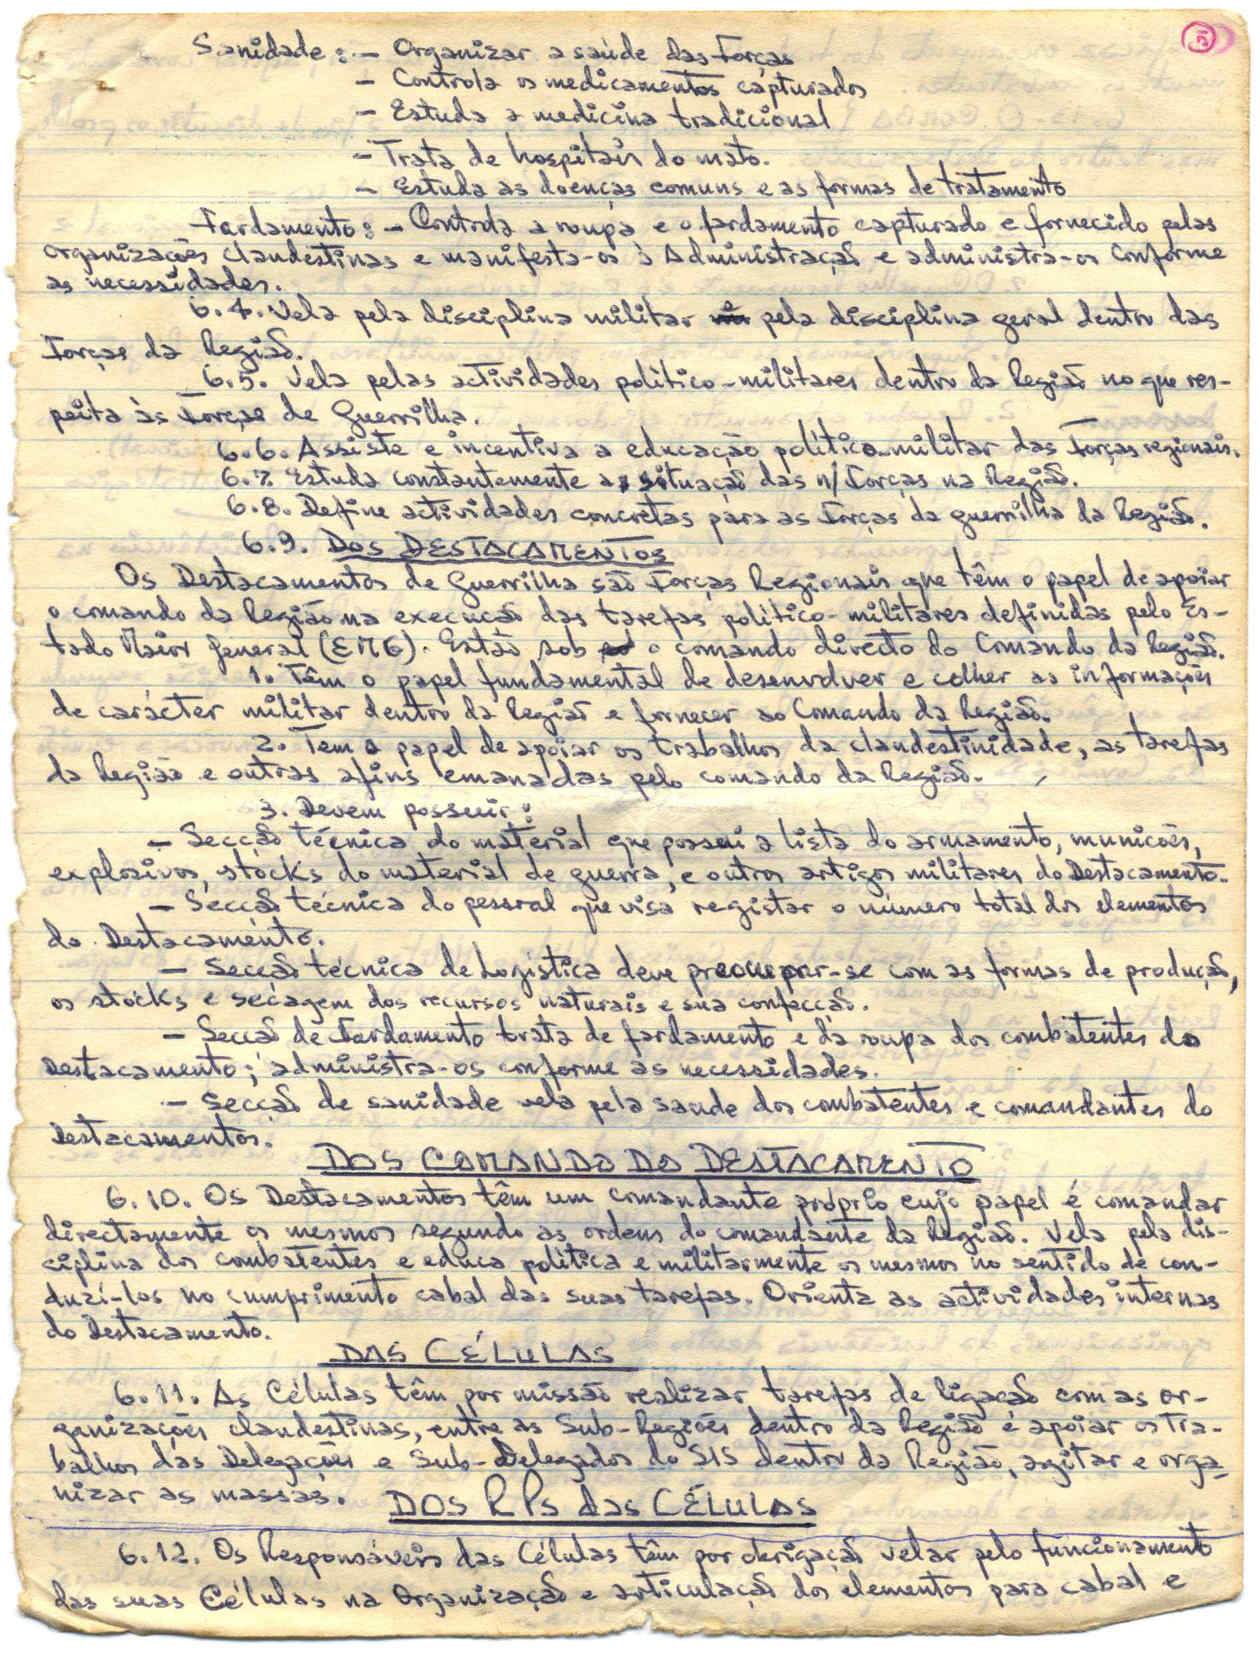 5
Sanidade: - Organizar a saúde das Forças
- Controla os medicamentos capturados
- Estuda a medicina tradicional
- Trata de hospitais do mato.
- Estuda as doenças comuns e as formas de tratamento
Fardamento: - Controla a roupa e o fardamento capturado e fornecido pelas
organizações clandestinas e manifesta-os à Administração e administra-os conforme
as necessidades.
6.4. Vela pela disciplina militar e pela disciplina geral dentro das
Forças da Região.
6.5. Vela pelas actividades político-militares dentro da Região no que res-
peita às Forças de Guerrilha.
6.6. Assiste e incentiva a educação político-militar das Forças regionais.
6.7. Estuda constantemente a situação das n/Forças na Região.
6.8. Define actividades concretas para as Forças da guerrilha da Região.
6.9. DOS DESTACAMENTOS
Os Destacamentos de Guerrilha são Forças Regionais que têm o papel de apoiar
o comando da Região na execução das tarefas político-militares definidas pelo Es-
tado Maior General (EMG). Estão sob o comando directo do Comando da Região.
1. Têm o papel fundamental de desenvolver e colher as informações
de carácter militar dentro da Região e fornecer ao Comando da Região.
2. Tem o papel de apoiar os trabalhos da clandestinidade, as tarefas
da Região e outras afins emanadas pelo comando da Região.
3. Devem possuir:
- Secção técnica do material que possui a lista do armamento, munições,
explosivos, stocks do material de guerra, e outros artigos militares do Destacamento.
- Secção técnica do pessoal que visa registar o número total dos elementos
do Destacamento.
- Secção técnica de Logística deve preocupar-se com as formas de produção,
os stocks e secagem dos recursos naturais e sua confecção.
- Secção de Fardamento trata de fardamento e da roupa dos combatentes do
Destacamento; administra-os conforme as necessidades.
- Secção de sanidade vela pela saúde dos combatentes e comandantes do
Destacamentos.
DOS COMANDO DO DESTACAMENTO
6.10. Os Destacamentos têm um comandante próprio cujo papel é comandar
directamente os mesmos segundo as ordens do comandante da Região. Vela pela dis-
ciplina dos combatentes e educa política e militarmente os mesmos no sentido de con-
duzi-los no cumprimento cabal das suas tarefas. Orienta as actividades internas
do Destacamento.
DAS CÉLULAS
6.11. As Células têm por missão realizar tarefas de ligação com as or-
ganizações clandestinas, entre as Sub-Regiões dentro da Região e apoiar os tra-
balhos das Delegações e Sub-Delegados do SIS dentro da Região, agitar e orga-
nizar as massas.
DOS RPs das CÉLULAS
6.12. Os Responsáveis das Células têm por obrigação velar pelo funcionamento
das suas Células na Organização e articulação dos elementos para cabal e